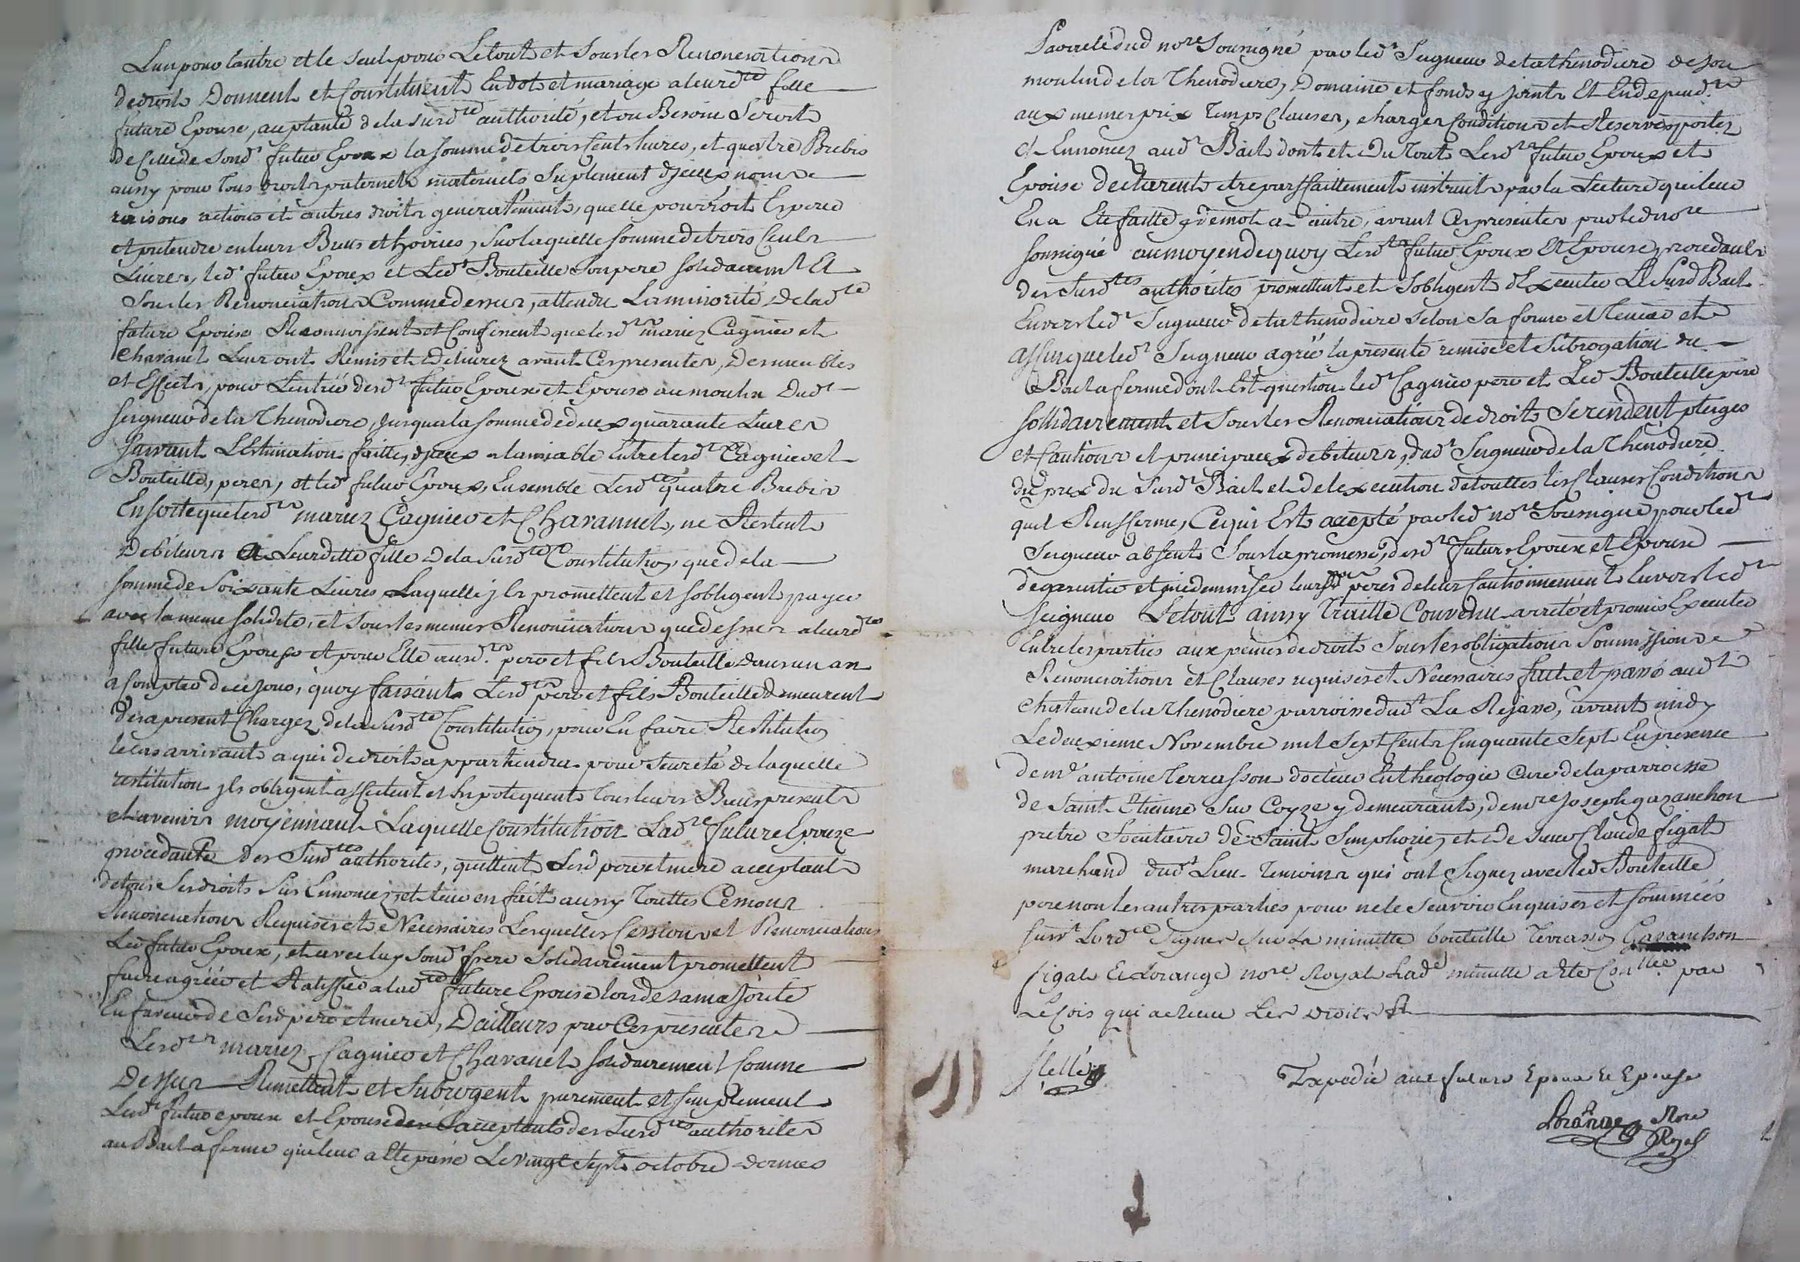 Lun pour lautre et le seul pour Le tout et sous les Renonciations
de droit Donnent et Constituent En dot et mariage a leurd.te fille
future Epouse, acceptante de la susd.te authorité, et ou Besoin Seroit
de Celle de Sond.t futur Epoux la somme de trois Cent livres, et quatre Brebis
aussy pour tous droits paternels maternels Suplement d'jceux noms
raisons actions et autres droits generalement, quelle pourroit Esperer
et pretendre en leurs Biens et hoiries, Sur laquelle somme de trois Cents
Livres, led.t futur Epoux et Led.t Bouteille Son pere solidairem.t Et
Sous les Renonciations Comme dessus, attendu La minorité, de lad.te
future Epouse Reconnoissent et Confessent que lesd.ts mariez Cagnieo et
Chavanel Leur ont Remis et Délivrez avant Ces presentes, Des meubles
et Effets, pour L'entrée desd.ts futur Epoux et Epouse au moulin Dud.t
seigneur de la Thenodiere, jusqua la somme de deux quarante Livres
suivant L'Estimation faitte, d'jceux a lamiable Entre lesd.ts Cagnieo et
Bouteille, peres, et led.t futur Epoux, Ensemble Lesd.tes quatre Brebis
En sorte que lesd.ts mariez Cagnieo et Chavannel, ne Restent
Debiteurs a Leurditte fille De la Susd.te Constitution, que de la
somme de Soixante Livres Laquelle jls promettent et sobligent payer
avec la meme solidité, et sous les memes Renonciations que dessus a leurd.te
fille future Epouse et pour Elle ausd.ts pere et fils Bouteille dans un an
a Compter de ce jour, quoy faisant Lesd.ts pere et fils Bouteille demeurent
des a present Chargez de la Susd.te Constitution, pour En faire Restitution
le Cas arrivant a qui de droit appartiendra pour Seureté de laquelle
restitution jls obligent affectent et hipotequent tous leurs Biens presents
et avenir moyennant Laquelle Constitution Lad.te future Epouze
procedante des Susd.tes authorités, quittent Lesd pere et mere acceptant
de tous ses droits Sus Enoncez et leur en fait aussy Touttes Cessions
Renonciations Requises et Nécessaires Lesquelles Cessions et Renonciations
Led.t futur Epoux, et avec luy Sond.t frere Solidairement promettent
faire agréer et Ratiffier a lad.te future Epouse lors de sa majorité
En faveur de Sesd pere et mere, D'ailleurs par Ces presentes
Lesd.ts mariez Cagnieo et Chavanel solidairement Comme
Dessus Remettent et Subrogent purement et simplement
Lesd.ts futur epoux et Epouse acceptants des Susd.tes authorités
au Bail a ferme qui leur a Eté passé Le vingt Sept octobre dernier
Parrelé dud no.re Soussigné par led.t Seigneur de la thenodiere de Son
moulin de la Thenodiere, Domaine et fonds y joints Et Endepend.ts
aux memes prix Temps Clauses, charges Conditions et Reserves portez
Et Ennoncez aud.t Bail dont et du Tout Lesd.ts futur Epoux et
Epouse declarent etre parffaitement instruits par la Lecture qui leur
En a Eté faitte de mot a autre, avant Ces presentes par led no.re
soussigné au moyen de quoy Lesd.ts futur Epoux Et Epouse, procedants
des Susd.tes authorités promettent et Sobligent d'Executer Le Susd Bail
Envers led.t Seigneur de la thenodiere selon Sa forme et teneur et
affin que led.t Seigneur agrée la presente remise et Subrogation du
Bail a ferme dont Est question led.t Cagnieo pere et Led Bouteille pere
sollidairement et Sous les Renonciations de droit Se rendent pleiges
et Cautions et principaux debiteurs, dud.t Seigneur de la Thenodiere
du prix du Susd.t Bail et de l'execution de touttes les Clauses Conditions
quil Rensferme, Ce qui Est accepté par led no.re Soussigné pour led.t
Seigneur absent Sous la promesse, desd.ts futurs Epoux et Epouse
de garentir et indemniser leurs pères de leur Cautionnement Envers led.t
seigneur Le tout ainsy Traitté Convenu arreté et promis Executer
Entre les parties aux peines de droit Sous les obligations Soumissions
Renonciations et Clauses requises et Nécessaires fait et passé aud.t
chateau de la Thenodiere parroisse dud.t La Rajasse, avant midy
Le deuxieme Novembre mil Sept Cents Cinquante Sept En presence
de m.r antoine Terrasson docteur En theologie Curé de la parroisse
de Saint Etienne Sur Coyze y demeurant, de m.re joseph gazanchon
pretre Societaire de Saint Simphorien et de sieur Claude figat
marchand dud.t Lieu Temoins qui ont Signez avec led Bouteille
pere non les autres parties pour ne le Scavoir Enquises et sommées
suiv.t Lord.ce Signez Sur La minutte bouteille Terrasson Gazanchon
figat Et Lorange no.re Royal Lad.e minutte a Eté Con.llée par
Le Cois qui a recu Les droits
Scellé
Expedié aux futurs Epoux et Epouse
Lorange No.re
Royal